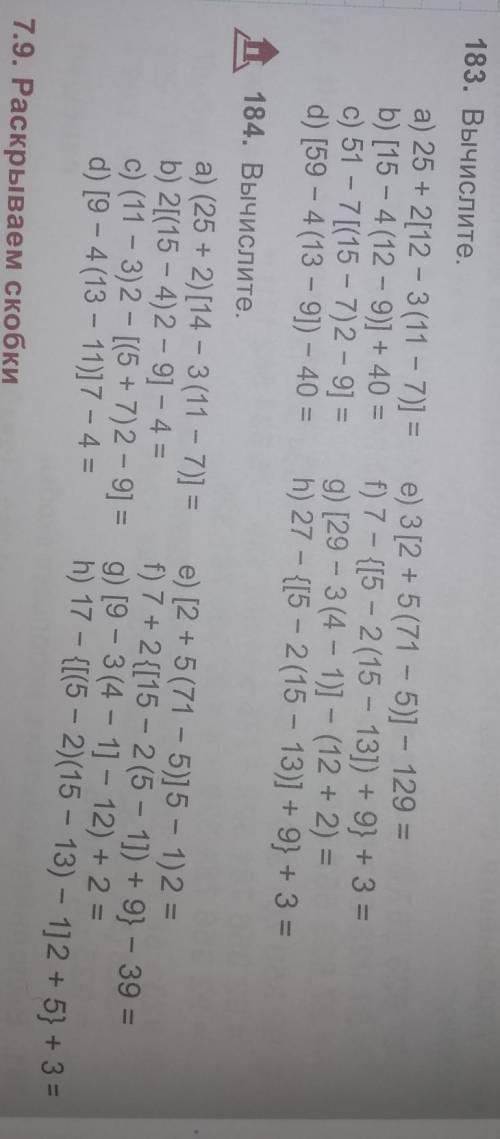 183. Вычислите.
a) 25 + 2[12 – 3(11 – 7)] =
b) [15 – 4(12 – 9)] + 40 =
c) 51 – 7[(15 – 7)2 – 9] =
d) [59 – 4(13 – 9]) – 40 =
e) 3[2 + 5(71 – 5)] – 129 =
f) 7 – {[5 – 2(15 – 13]) + 9} + 3 =
g) [29 – 3(4 – 1)] – (12 + 2) =
h) 27 – {[5 – 2(15 – 13)] + 9} + 3 =
184. Вычислите.
a) (25 + 2)[14 – 3(11 – 7)] =
b) 2[(15 – 4)2 – 9] – 4 =
c) (11 – 3)2 – [(5 + 7)2 – 9] =
d) [9 – 4(13 – 11)]7 – 4 =
e) [2 + 5(71 – 5)]5 – 1)2 =
f) 7 + 2{[15 – 2(5 – 1]) + 9} – 39 =
g) [9 – 3(4 – 1] – 12) + 2 =
h) 17 – {[(5 – 2)(15 – 13) – 1]2 + 5} + 3 =
7.9. Раскрываем скобки